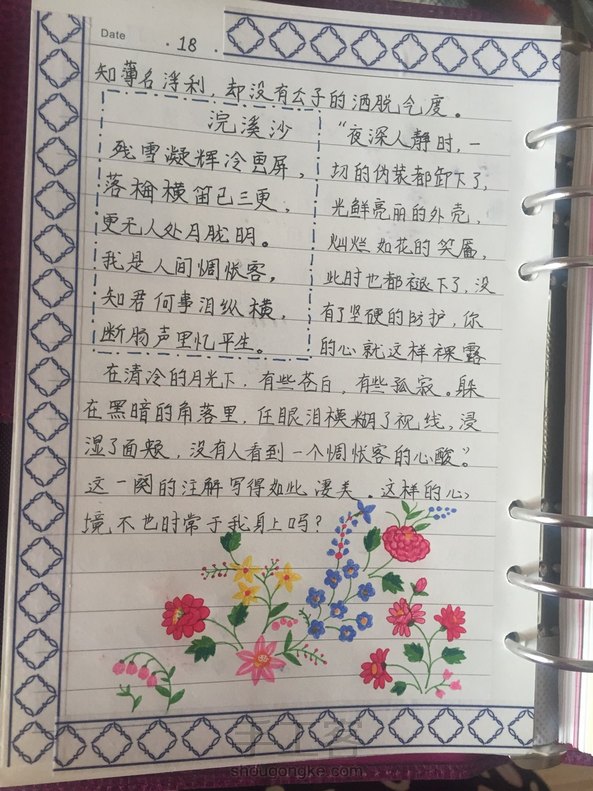 Date
·18·
知薄名浮利，却没有公子的洒脱气度。
浣溪沙
残雪凝辉冷画屏，
落梅横笛已三更，
更无人处月胧明。
我是人间惆怅客，
知君何事泪纵横，
断肠声里忆平生。
“夜深人静时，一
切的伪装都卸下了，
光鲜亮丽的外壳，
灿烂如花的笑靥，
此时也都褪下了，没
有了坚硬的防护，你
的心就这样裸露
在清冷的月光下，有些苍白，有些孤寂。躲
在黑暗的角落里，任眼泪模糊了视线，浸
湿了面颊，没有人看到一个惆怅客的心酸”。
这一阕的注解写得如此凄美。这样的心
境不也时常于我身上吗？
手工客
shougongke.com